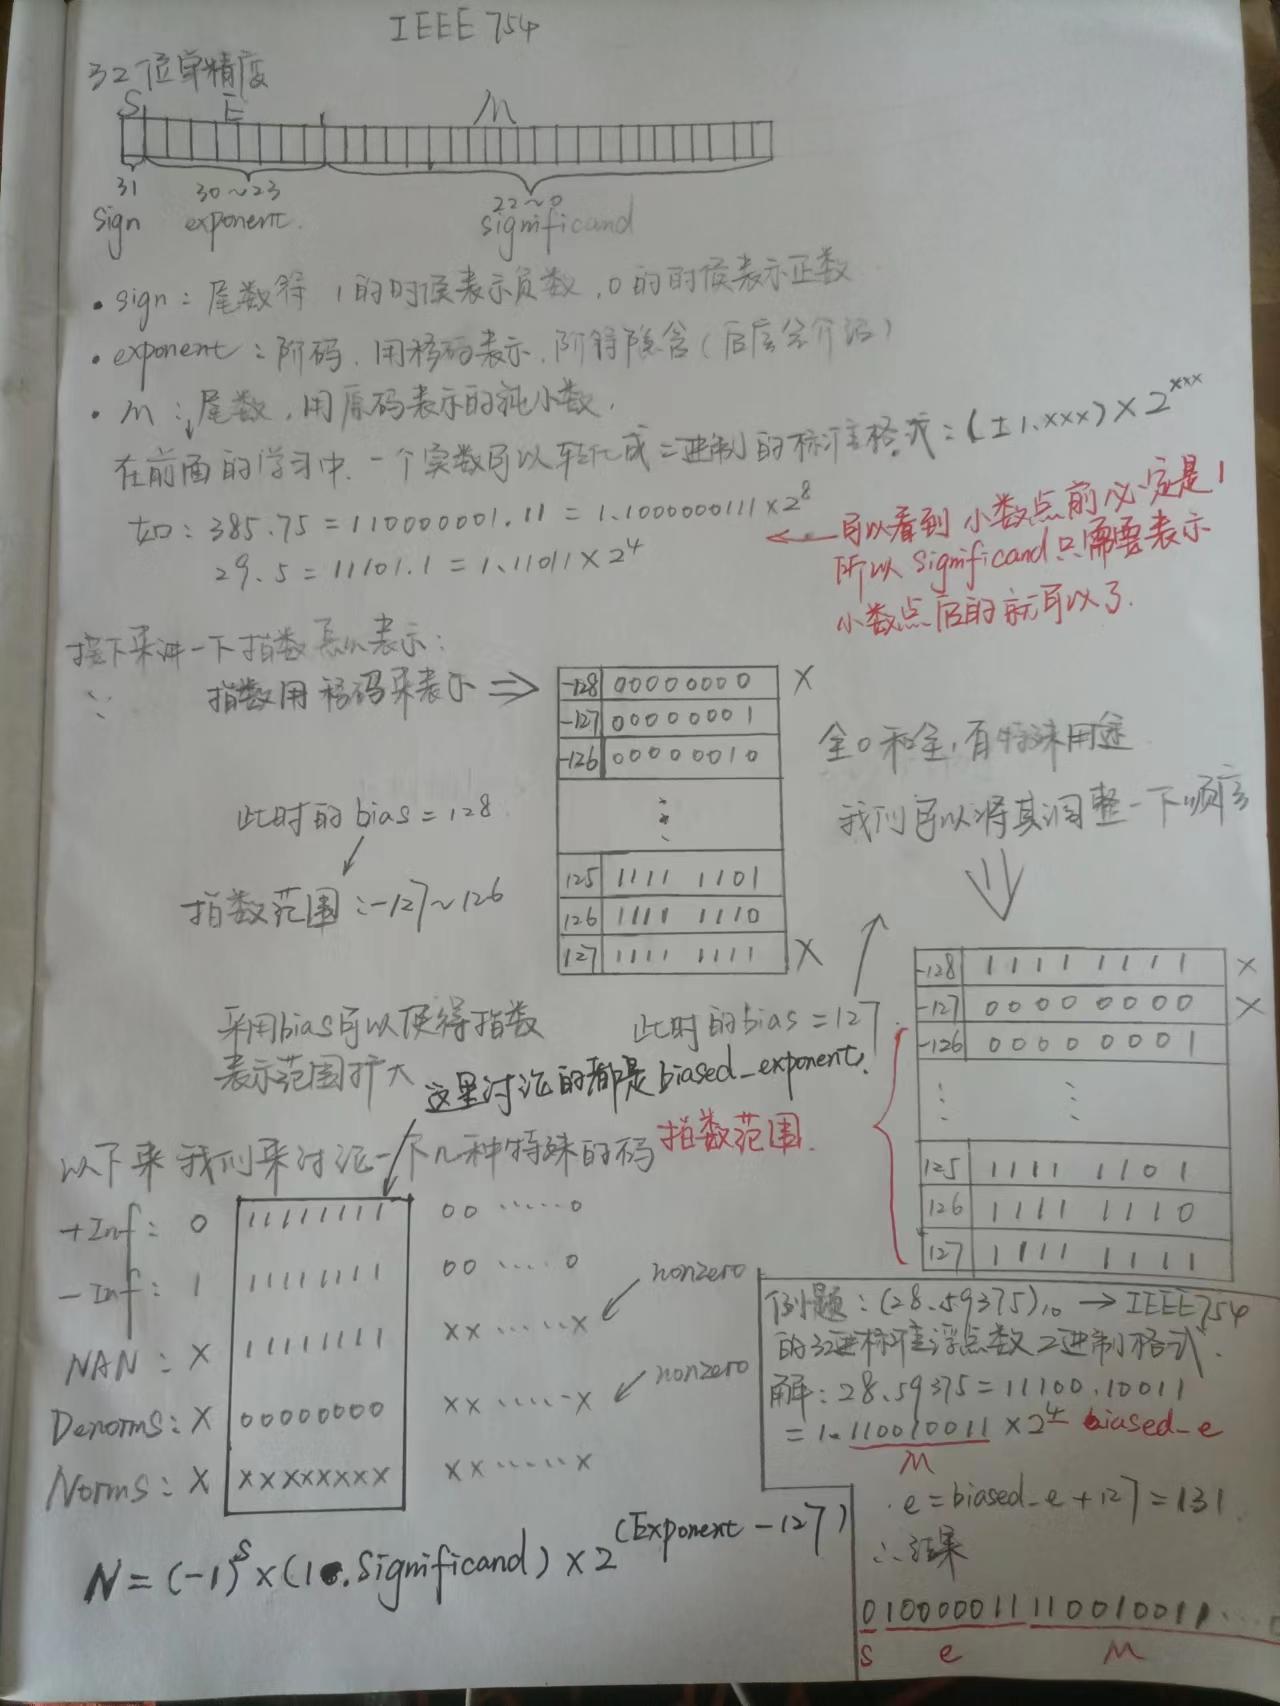 IEEE 754
32位单精度
S E M
31 30~23 22~0
sign exponent. significand
• sign：尾数符 1的时候表示负数，0的时候表示正数
• exponent：阶码，用移码表示，阶符隐含（后层会介绍）
• M：尾数，用原码表示的纯小数，
在前面的学习中，一个实数可以转化成二进制的标准格式：(±1.xxx)×2^xxx
如：385.75 = 110000001.11 = 1.1000000111×2^8
29.5 = 11101.1 = 1.11011×2^4
可以看到小数点前必定是1
所以significand只需要表示
小数点后的就可以了.
接下来讲一下指数怎么表示：
指数用移码来表示 ⇒
-128 00000000 X
-127 00000001
-126 00000010
⋮
125 1111 1101
126 1111 1110
127 1111 1111 X
此时的bias = 128
指数范围：-127~126
全0和全1有特殊用途
我们可以将其调整一下顺序
-128 1111 1111 X
-127 0000 0000 X
-126 0000 0001
⋮ ⋮
125 1111 1101
126 1111 1110
127 1111 1111
采用bias可以使得指数
表示范围扩大
此时的bias = 127.
这里讨论的都是biased_exponent.
指数范围.
以下来我们来讨论一下几种特殊的码
+Inf： 0 11111111 00······0
-Inf： 1 11111111 00····0
NAN： X 11111111 XX·····X nonzero
Denorms：X 00000000 XX·····X nonzero
Norms：X XXXXXXXX XX·····X
N = (-1)^S×(1.Significand)×2^(Exponent-127)
例题：(28.59375)₁₀ → IEEE754
的32进标准浮点数二进制格式.
解：28.59375 = 11100.10011
= 1.110010011×2^4 biased_e
M
e = biased_e + 127 = 131.
∴结果
0 10000011 110010011····0
S e M